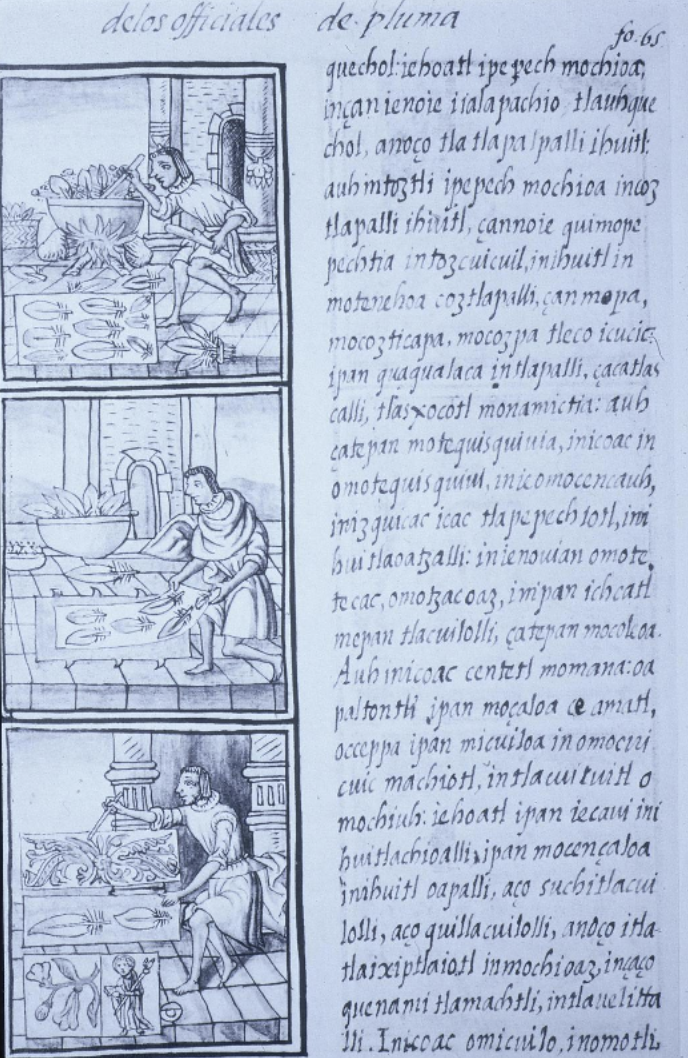 delos officiales de pluma
fo. 65
quechol: iehoatl ipepech mochioa;
inçan ienoie iialapachio tlauhque
chol, anoço tla tlapalpalli ihuitl:
auh intoztli ipepech mochioa incoz
tlapalli ihuitl, çannoie quimope
pechtia intozcuicuil, inihuitl in
motenehoa coztlapalli, çan mopa,
mocozticapa, mocozpa tleco icucic:
ipan quaqualaca intlapalli, çacatlas
calli, tlasxocotl monamictia: auh
çatepan motequisquiuia, inicoac in
omotequisquiui, inicomocencauh,
inizquicac icac tlapepechiotl, ini
huitlaoatzalli: inienouian omote.
tecac, omotzacoaz, inipan ichcatl
mepan tlacuilolli, çatepan mocolcoa.
Auh inicoac centetl momana: oa
paltontli ipan moçaloa ce amatl,
occeppa ipan micuiloa in omocui
cuic machiotl, in tlacuicuitl o
mochiuh: iehoatl ipan iecaui ini
huitlachioalli, ipan mocençaloa
inihuitl oapalli, aço suchitlacui
lolli, aço quillacuilolli, anoço itla
tlaixiptlaiotl inmochioaz, inçaço
quenami tlamachtli, intlauelitta
lli. Inicoac omicuilo, inomotli,